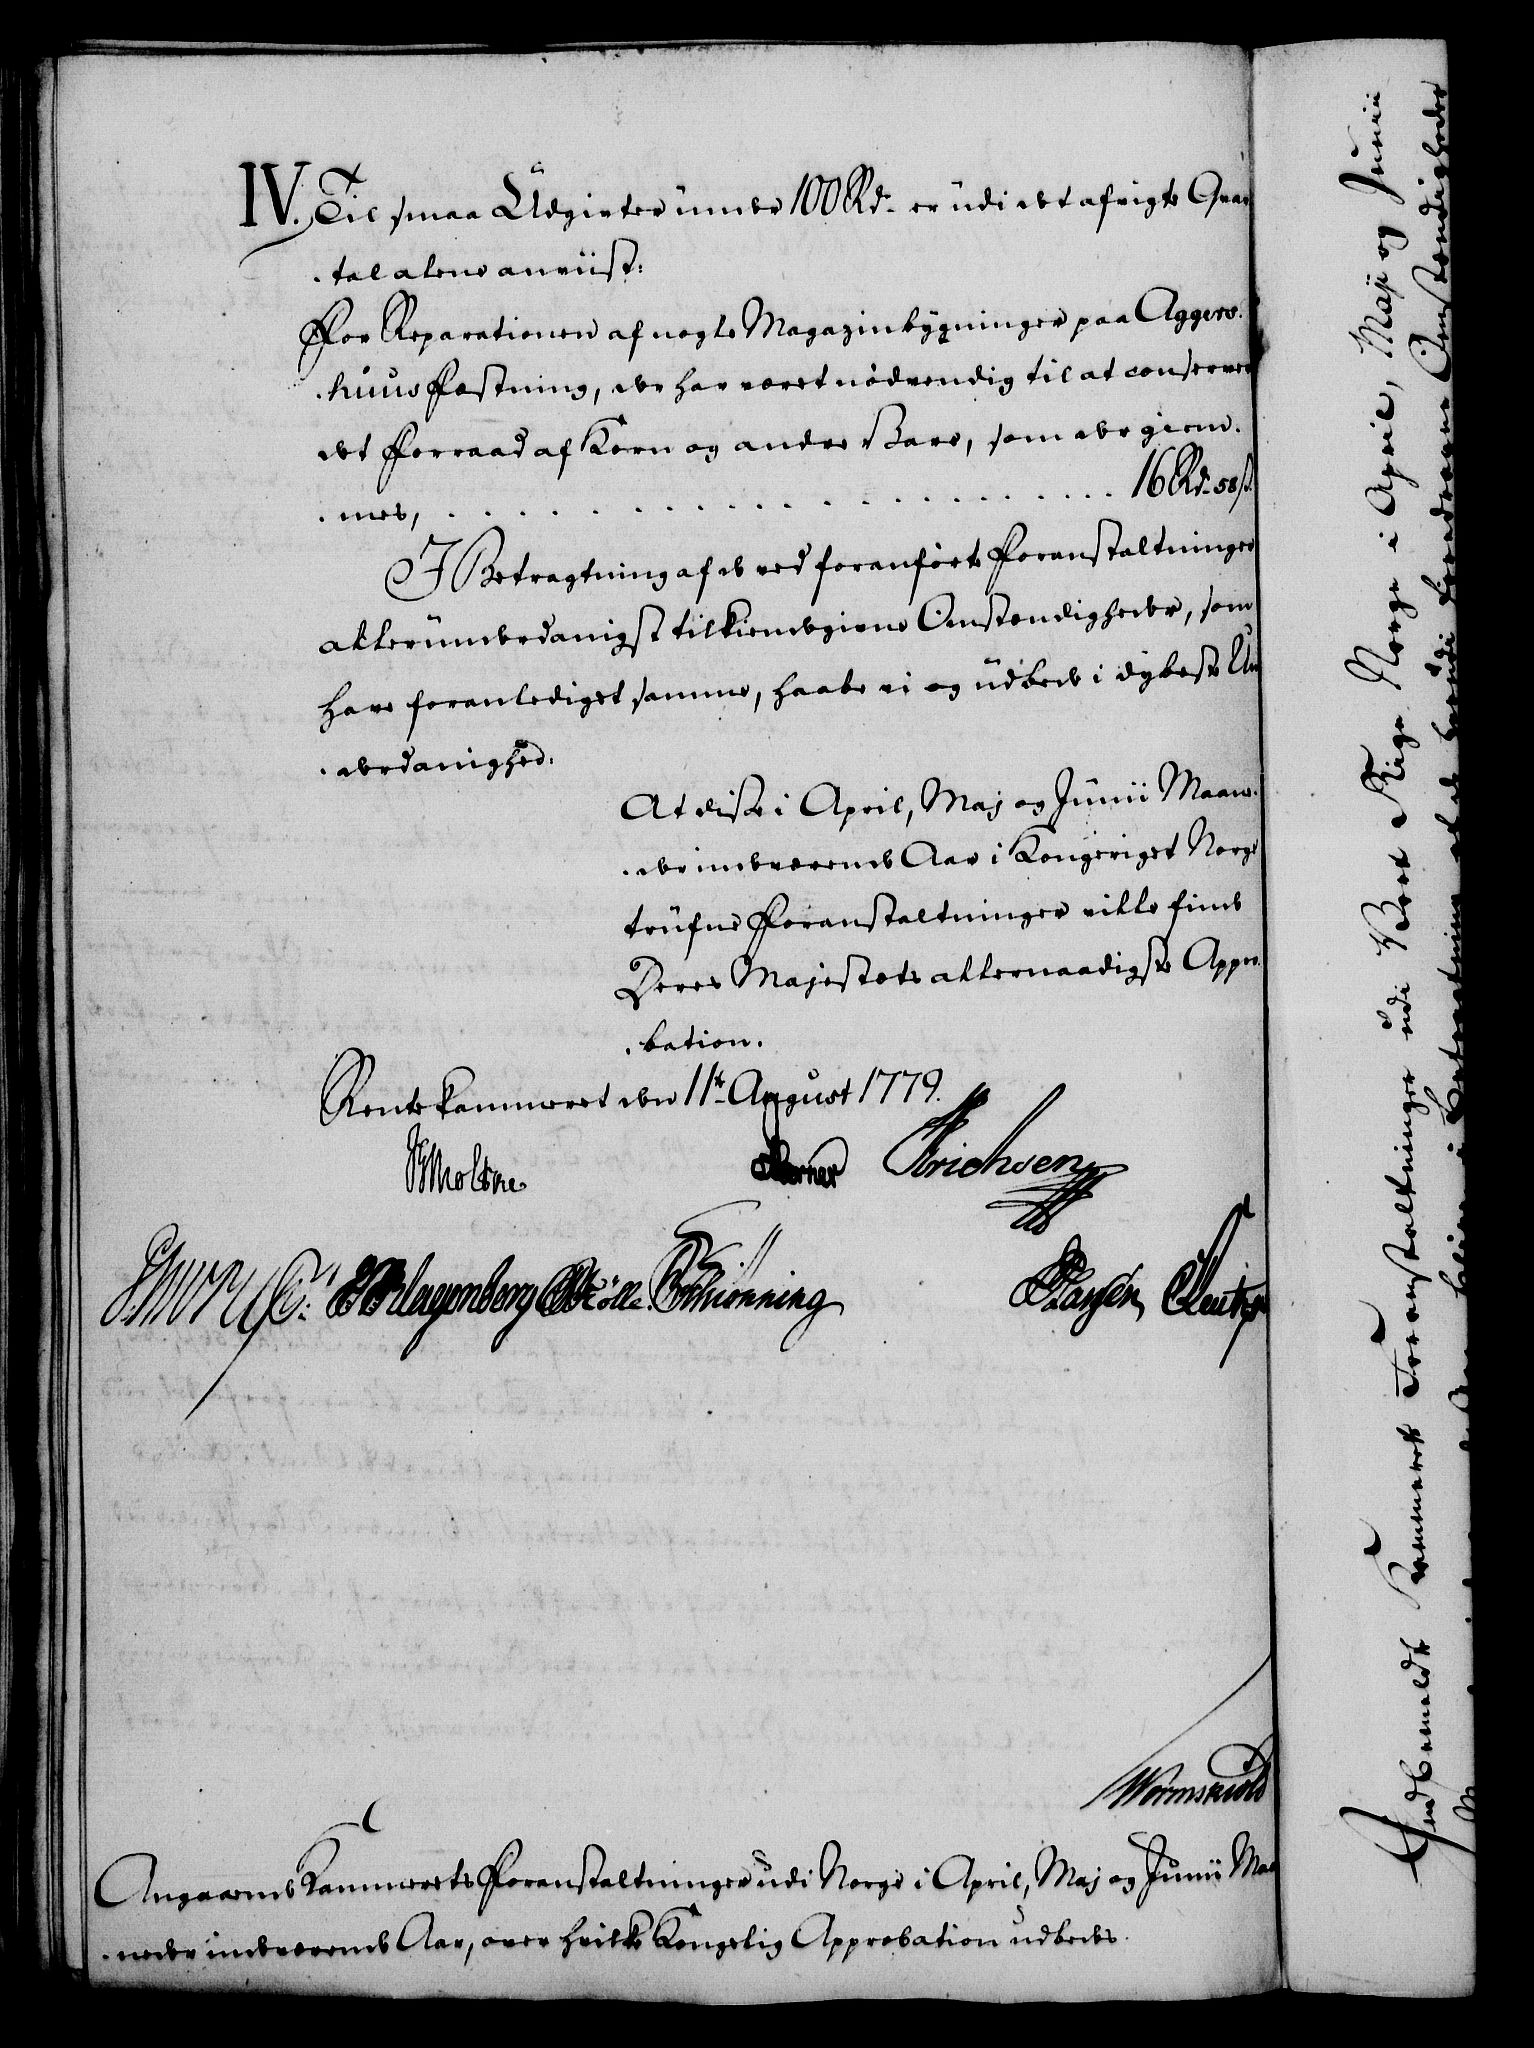 IV. Til smaa Udgivter under 100 Rd. er udi det afvigte Qvar
tal alene anviist:
For Reparationen af nogle Magazinbygninger paa Aggers-
huus Fæstning, der har været nödvendig til at conservere
det Forraad af Korn og andre Vare, som der giem-
mes, . . . . . . . . . . . . . . . . . . . . . 16 Rd. 58 s.
I Betragtning af de ved foranförte Foranstaltninger
allerunderdanigst tilkiendegivne Omstændigheder, som
have foranlediget samme, haabe vi og udbede i dybeste Un
derdanighed:
At disse i April, Maj og Junii Maane-
der indeværende Aar i Kongeriget Norge
trufne Foranstaltninger ville finde
Deres Majestæts allernaadigste Appro-
bation.
Rentekammeret den 11te August 1779.
Moltke Erichsen
Klagenberg Schiönning
Wormskiold
Angaaende Kammerets Foranstaltninger udi Norge i April, Maj og Junii Maa
neder indeværende Aar, over hvilke Kongelig Approbation udbedes.
Indbemeldte Kammerets Foranstaltninger udi Vort Rige Norge i April, Maji og Junii